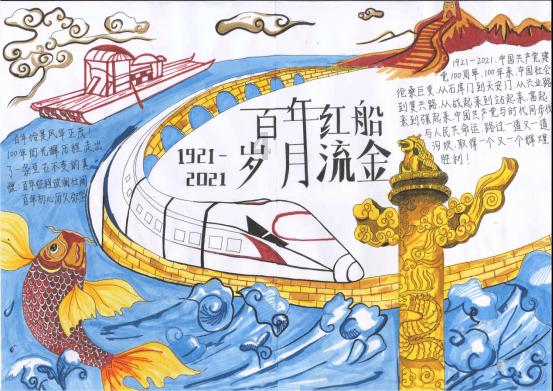 百年红船
岁月流金
1921-
2021
1921-2021,中国共产党建
党100周年,100年来,中国社会
沧桑巨变,从石库门到天安门,从兴业路
到复兴路,从战起来到站起来,富起
来到强起来,中国共产党与时代同步伐
与人民共命运,跨过一道又一道
沟坎,取得一个又一个辉煌
胜利!
百年恰是风华正茂!
100年的光辉历程,走出
了一条坚不变的真
理:百年征程波澜壮阔
百年初心历久弥坚